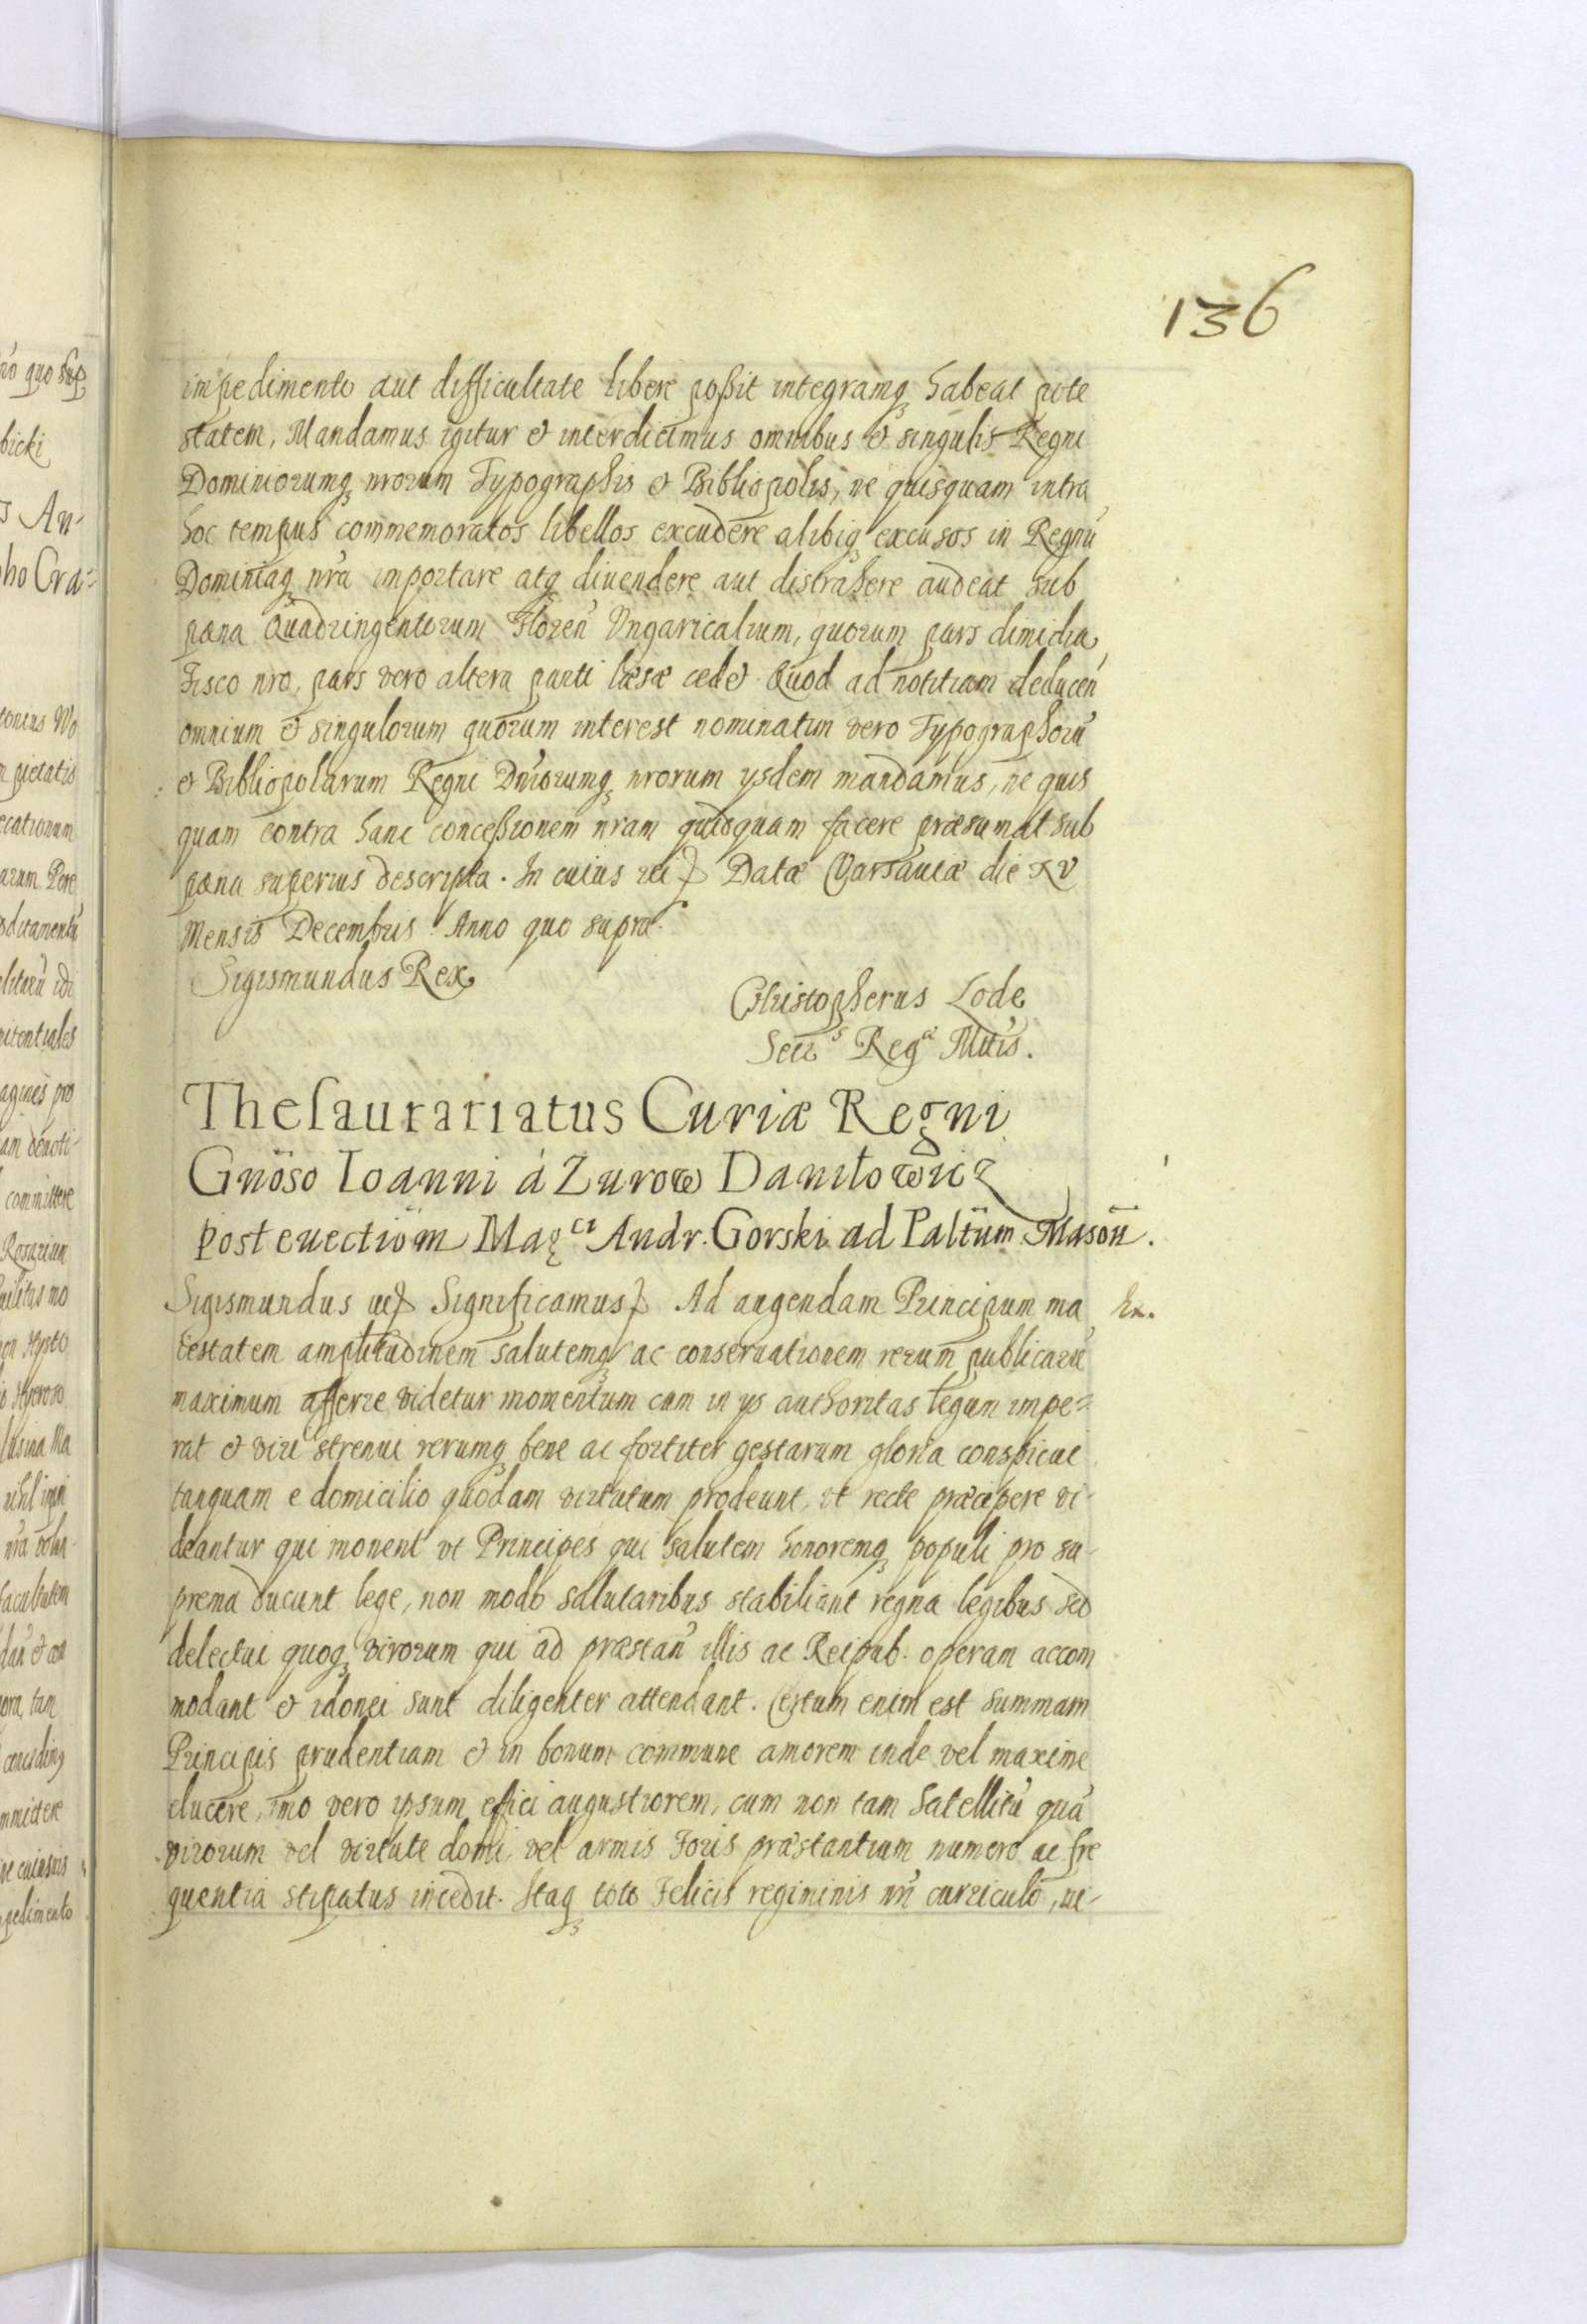 136
impedimento aut difficultate libere possit integramq habeat pote
statem, Mandamus igitur et interdicimus omnibus et singulis Regni
Dominiorumq nrorum Typographis et Bibliopolis, ne quisquam intra
hoc tempus commemoratos libellos excudere alibiq excusos in Regnū
Dominiaq nra importare atq diuendere aut distrahere audeat sub
pæna Quadringentorum Floren Vngaricalium, quorum pars dimidia
Fisco nro, pars vero altera parti læsæ cedet. Quod ad notitiam deducen
omnium et singulorum quorum interest nominatim vero Typographorū
et Bibliopolarum Regni Dniorumq nrorum ysdem mandamus, ne quis
quam contra hanc concessionem nram quidquam facere præsumat sub
pæna superius descripta. In cuius rei Datæ Varsauiæ die XV
Mensis Decembris Anno quo supra.
Sigismundus Rex
Christopherus Lode
Secr^s Reg^æ Mtis.
Thesaurariatus Curiæ Regni
Gnöso Ioanni á Zurow Daniłowicz
post euectiöm Mag^ci Andr. Gorski ad Paltüm Masöu.
Sigismundus Significamus Ad augendam Principum ma
iestatem amplitudinem salutemq ac conseruationem rerum publicarū
maximum afferre videtur momentum cum in ys authoritas legum impe=
rat et viri strenui rerumq bene ac fortiter gestarum gloria conspicui
tanquam e domicilio quodam virtutum prodeunt, vt recte præcipere vi-
deantur qui monent vt Principes qui salutem honoremq populi pro su-
prema ducunt lege, non modo salutaribus stabiliant regna legibus sed
delectui quoq virorum qui ad præstan illis ac Reipub. operam accom
modant et idonei sunt diligenter attendant. Certum enim est summam
Principis prudentiam et in bonum commune amorem inde vel maxime
elucere, imo vero ipsum effici augustiorem, cum non tam Satellitū quā
virorum vel virtute domi, vel armis Foris præstantium numero ac fre
quentia stipatus incedit. Itaq toto Felicis regiminis nri curriculo, ni-